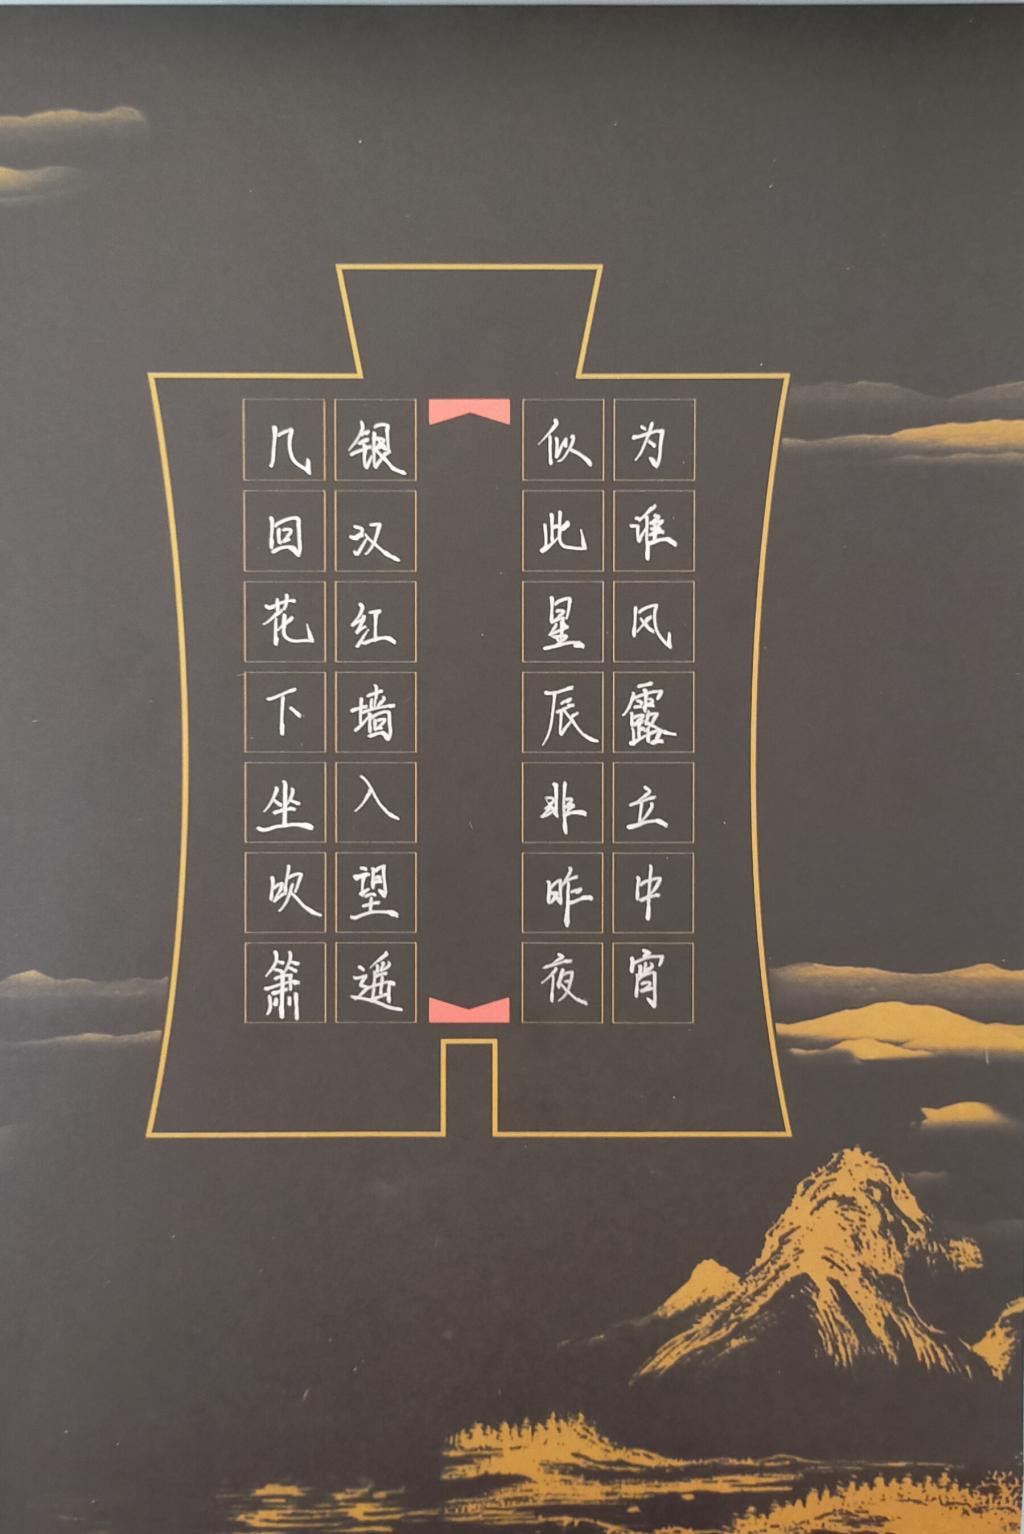 几回花下坐吹箫
银汉红墙入望遥
似此星辰非昨夜
为谁风露立中宵